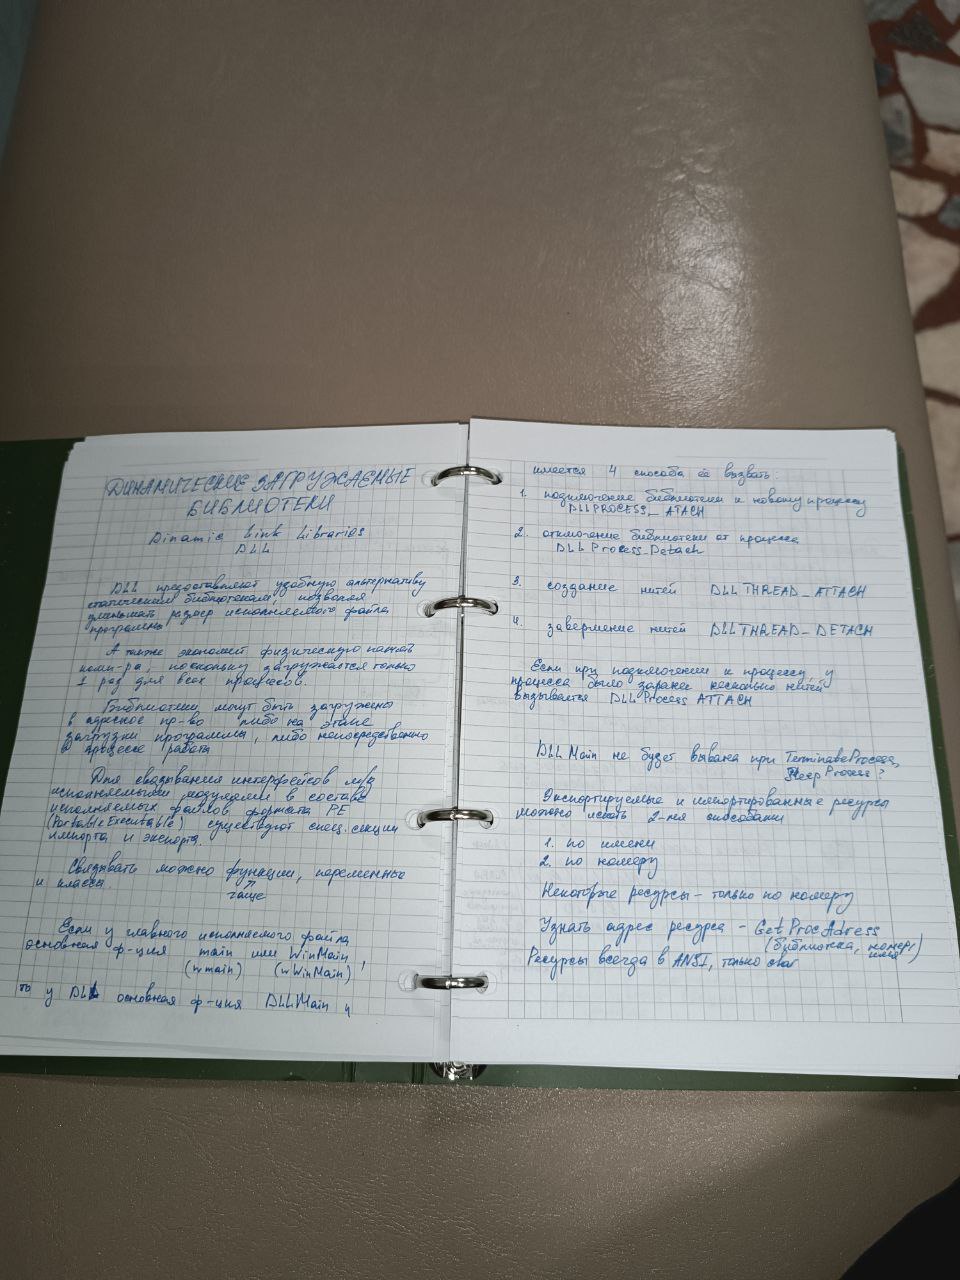 ДИНАМИЧЕСКИЕ ЗАГРУЖАЕМЫЕ
БИБЛИОТЕКИ
Dinamic Link Libraries
DLL
DLL предоставляют удобную альтернативу
статическим библиотекам, позволяя
уменьшать размер исполняемого файла
программы
А также экономет физическую память
комп-ра, поскольку загружается только
1 раз для всех процессов.
Библиотеки могут быть загружены
в адресное пр-во либо на этапе
загрузки программы, либо непосредственно
в процессе работы
Для связывания интерфейсов м/у
исполняемыми модулями в составе
исполняемых файлов формата PE
(Portable Executable) существуют спец. секции
импорта и экспорта.
Связывать можно функции, переменные
и классы.
чаще
Если у главного исполняемого файла
основная ф-ция main или WinMain,
(wmain) (wWinMain)
то у DLL основная ф-ция DLLMain и
имеется 4 способа её вызвать:
1. подключение библиотеки к новому процессу
DLLPROCESS_ATACH
2. отключение библиотеки от процесса
DLL Process_Detach
3. создание нитей DLLTHREAD_ATTACH
4. завершение нитей DLLTHREAD_DETACH
Если при подключении к процессу у
процесса было заранее несколько нитей
вызывается DLLProcess ATTACH
DLLMain не будет вывана при TerminateProcess,
SleepProcess?
Экспортируемые и импортированные ресурсы
можно искать 2-мя способами
1. по имени
2. по номеру
Некоторые ресурсы - только по номеру
Узнать адрес ресурса - GetProcAdress
(библиотка, номер)
имя
Ресурсы всегда в ANSI, только